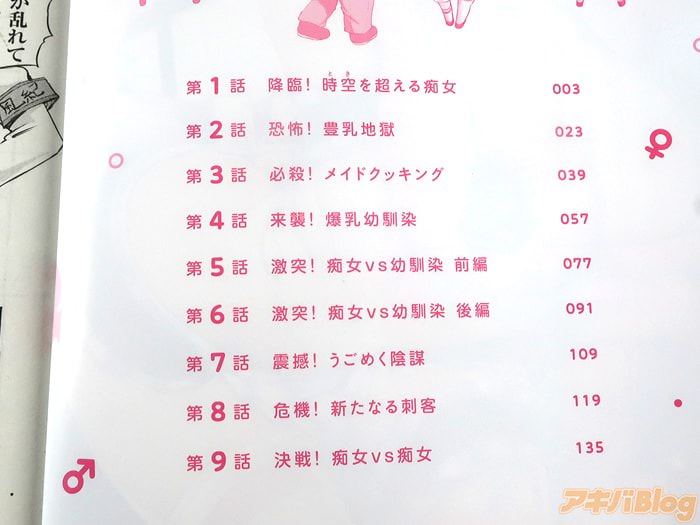 が乱れて
風紀
第1話 降臨！時空を超える痴女 003
とき
第2話 恐怖！豊乳地獄 023
第3話 必殺！メイドクッキング 039
第4話 来襲！爆乳幼馴染 057
第5話 激突！痴女vs幼馴染 前編 077
第6話 激突！痴女vs幼馴染 後編 091
第7話 震撼！うごめく陰謀 109
第8話 危機！新たなる刺客 119
第9話 決戦！痴女vs痴女 135
アキバBlog